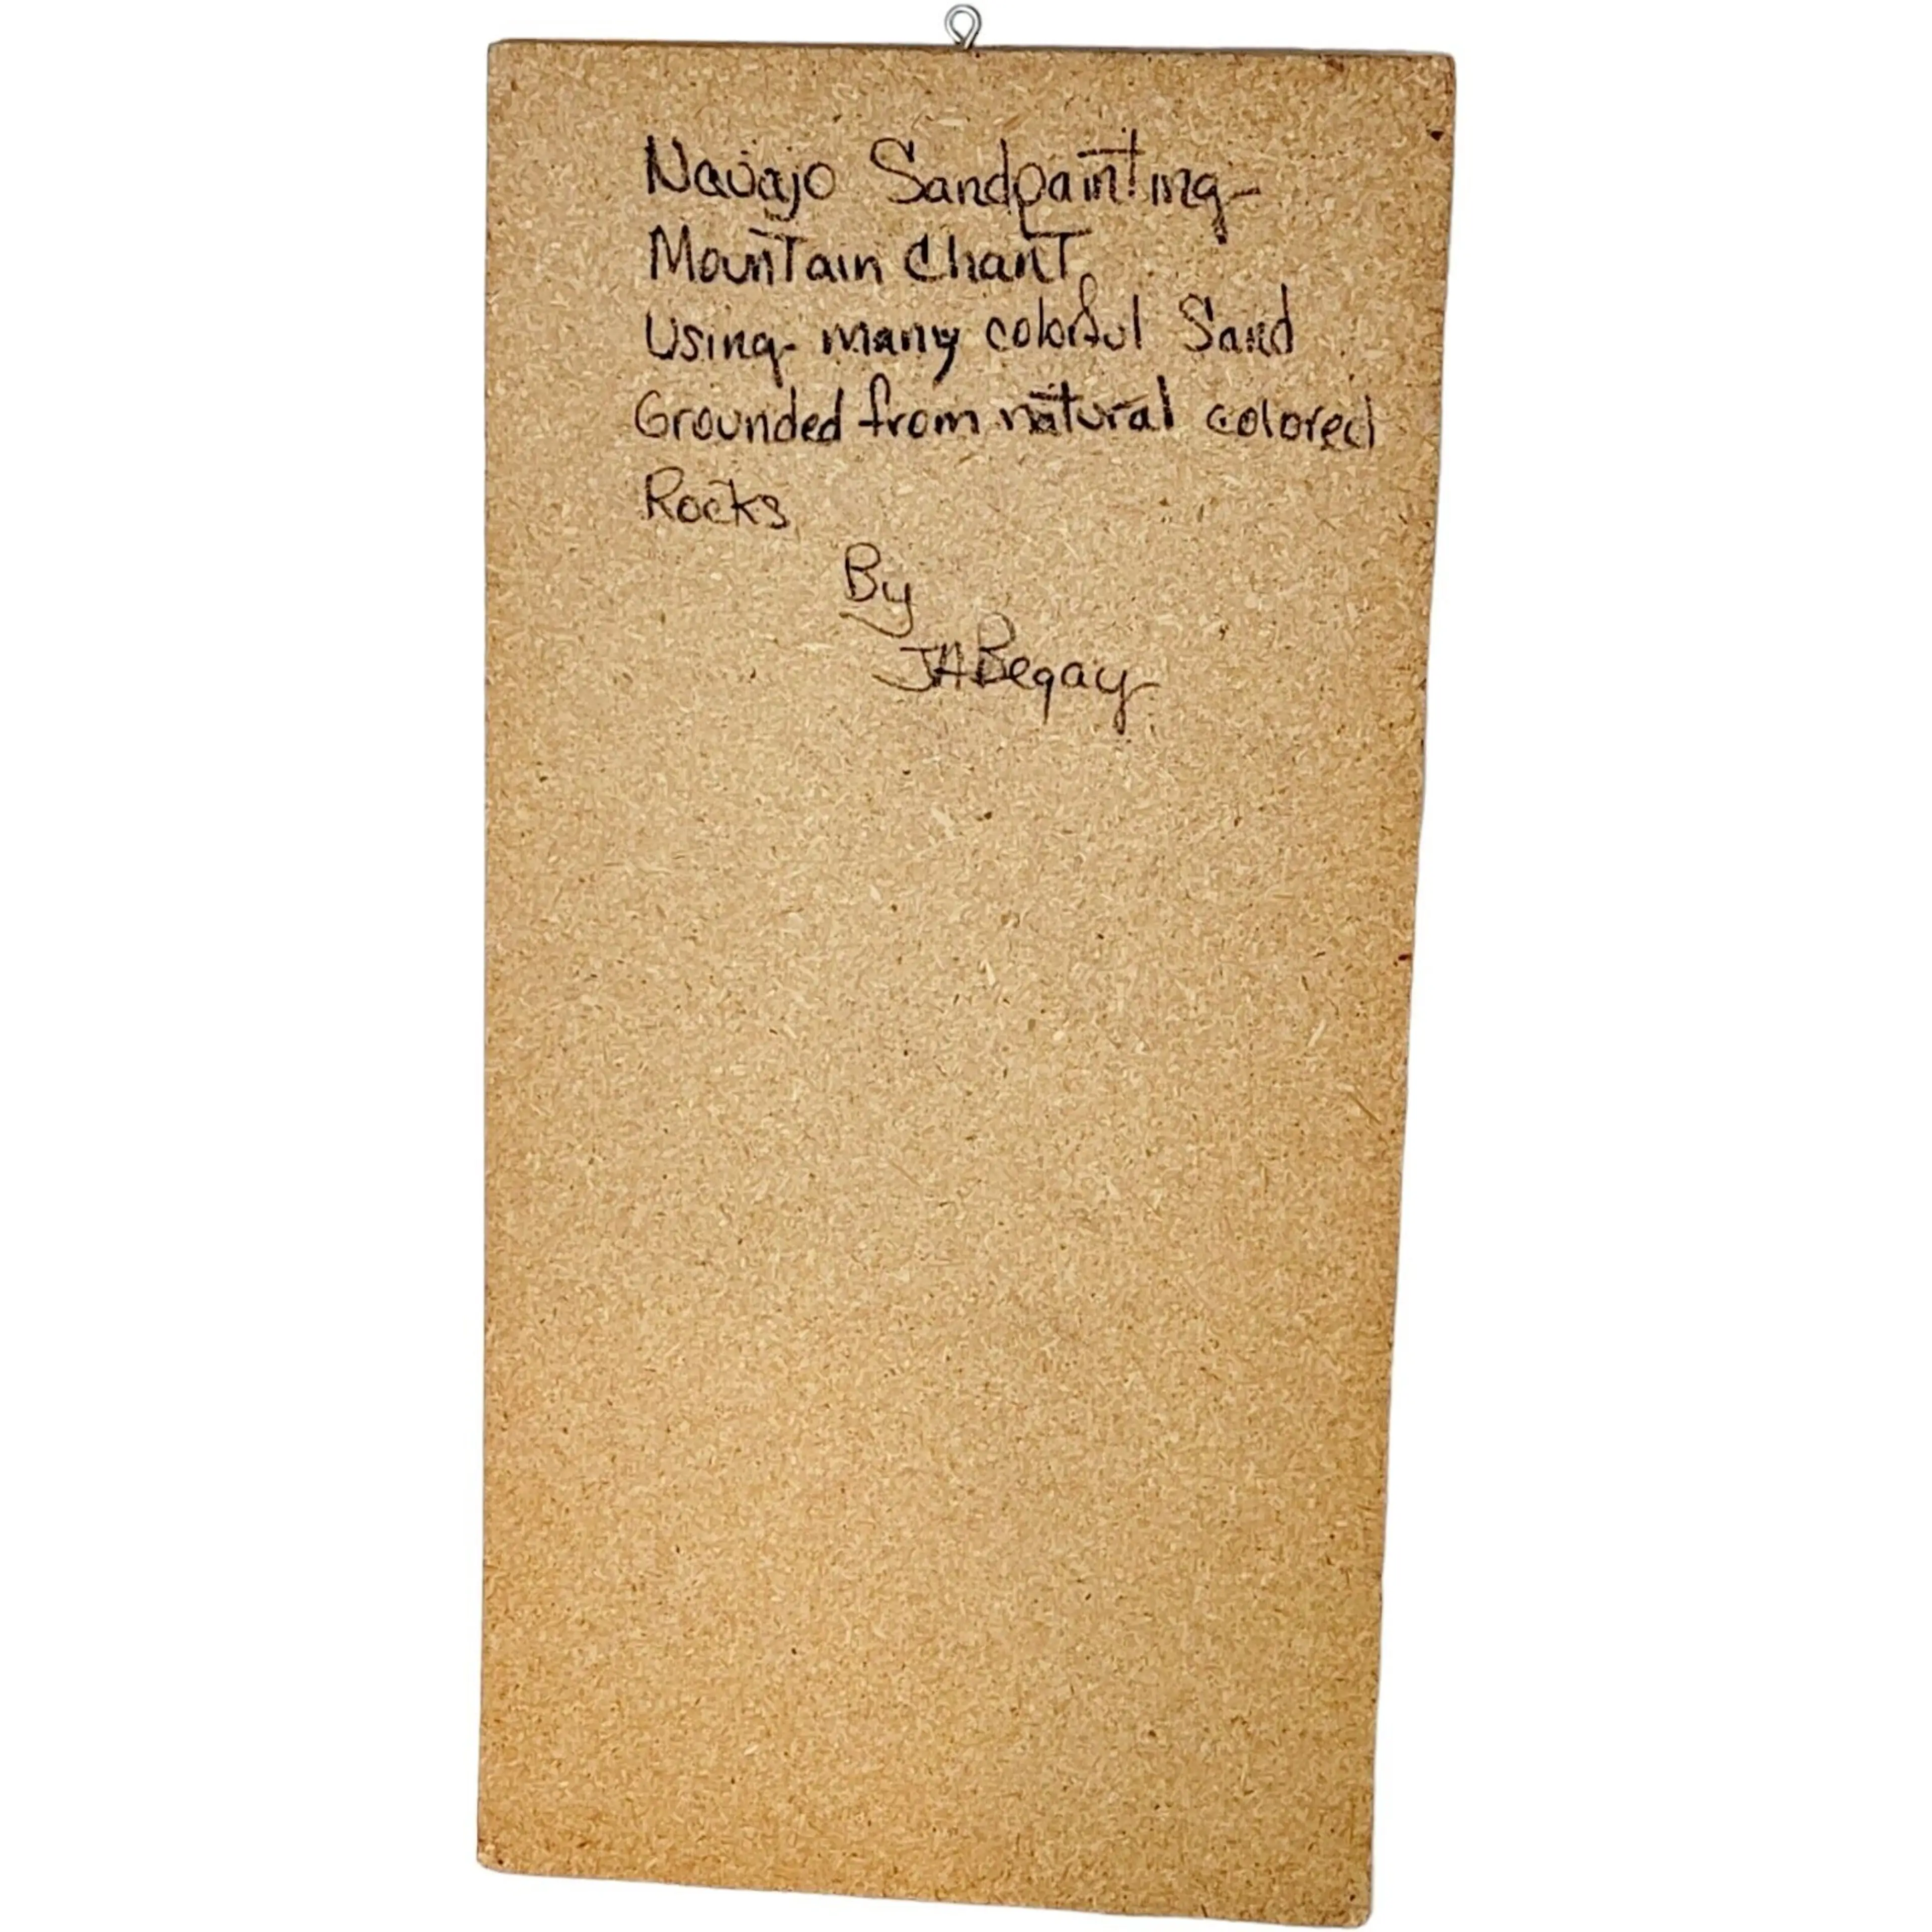 Navajo Sandpainting-
Mountain Chant.
Using many colorful Sand
Grounded from natural colored
Rocks
By
JABegay